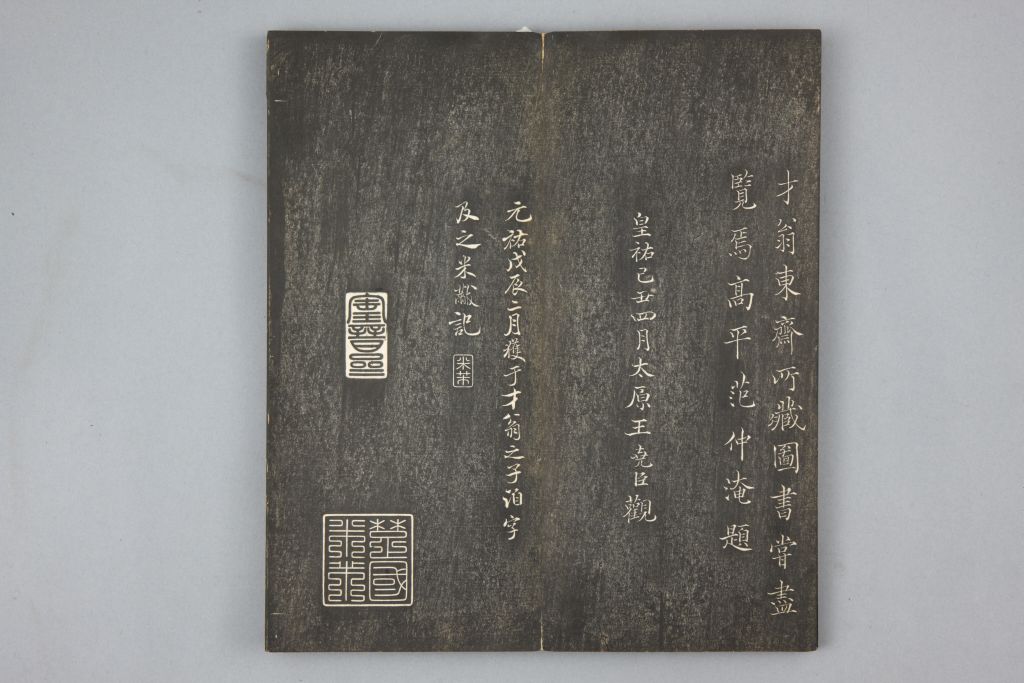 才翁東齋所藏圖書甞盡
覽焉高平范仲淹題
皇祐己丑四月太原王堯臣觀
元祐戊辰二月獲于才翁之子洎字
及之米黻記
米芾
楚國米芾